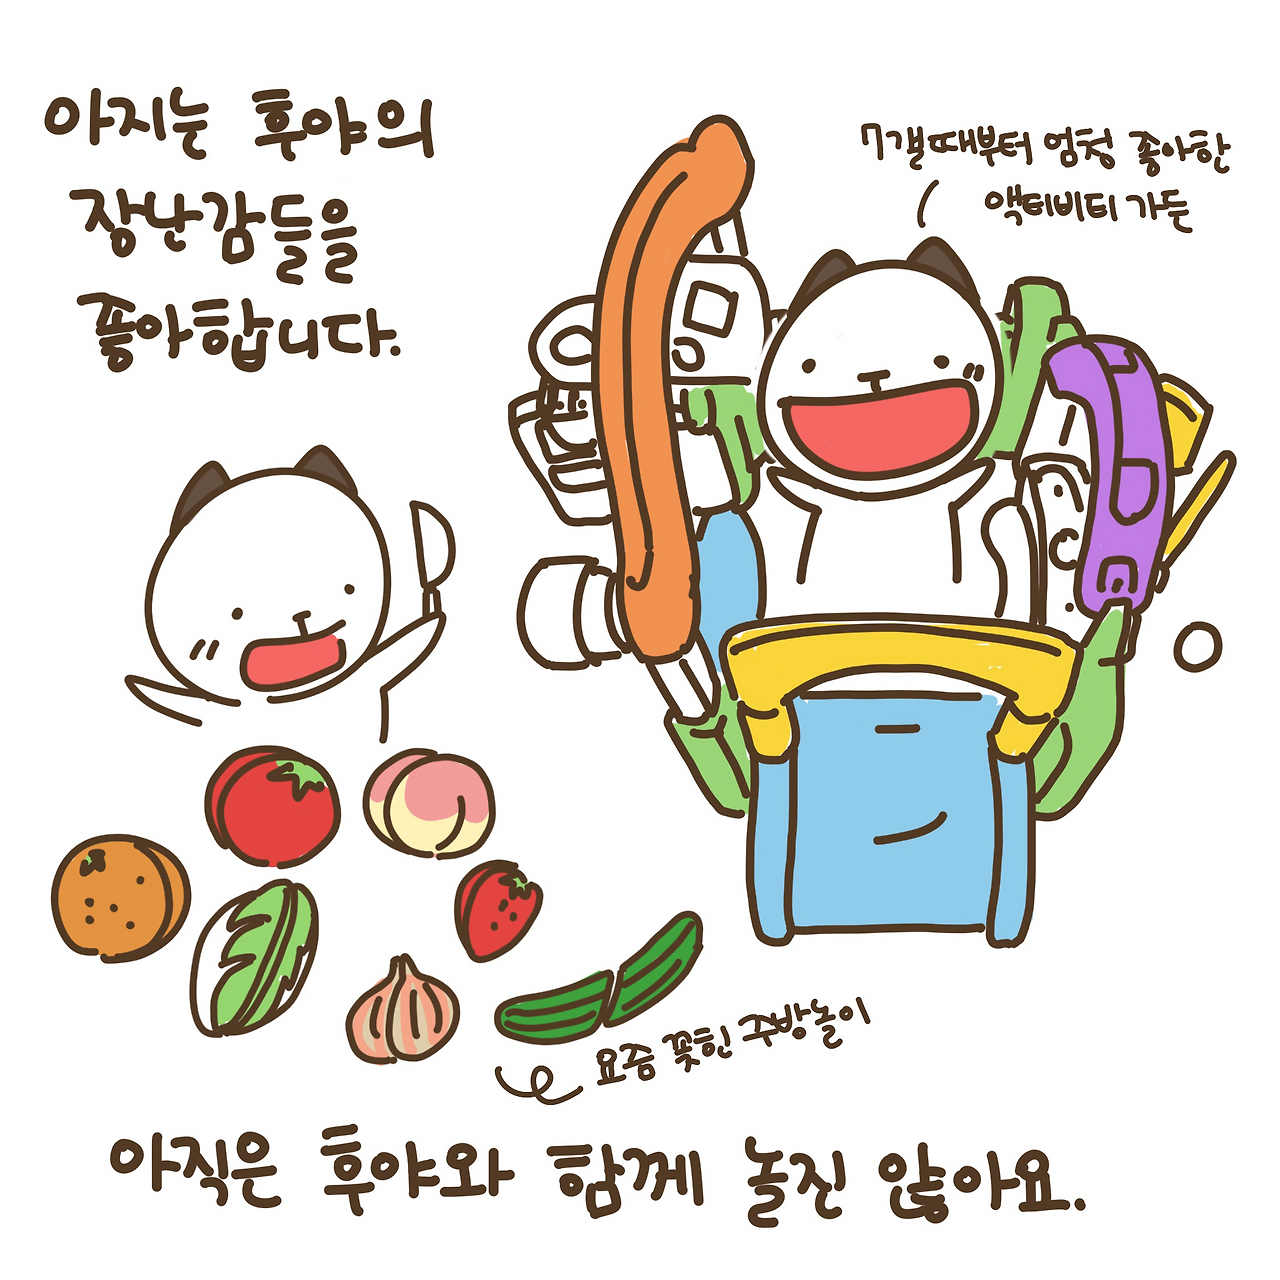 아지는 후야의
장난감들을
좋아합니다.
7갤때부터 엄청 좋아한
액티비티 가든
요즘 꽂힌 주방놀이
아직은 후야와 함께 놀진 않아요.